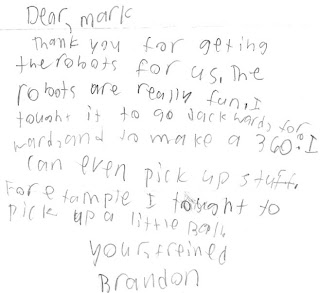 Dear, mark
thank you for geting
the robots for us, The
robots are really fun, I
tought it to go backwards, for
wards, and to make a 360°. I
can even pick up stuff.
For example I tought to
pick up a little Ball.
your, freined
Brandon